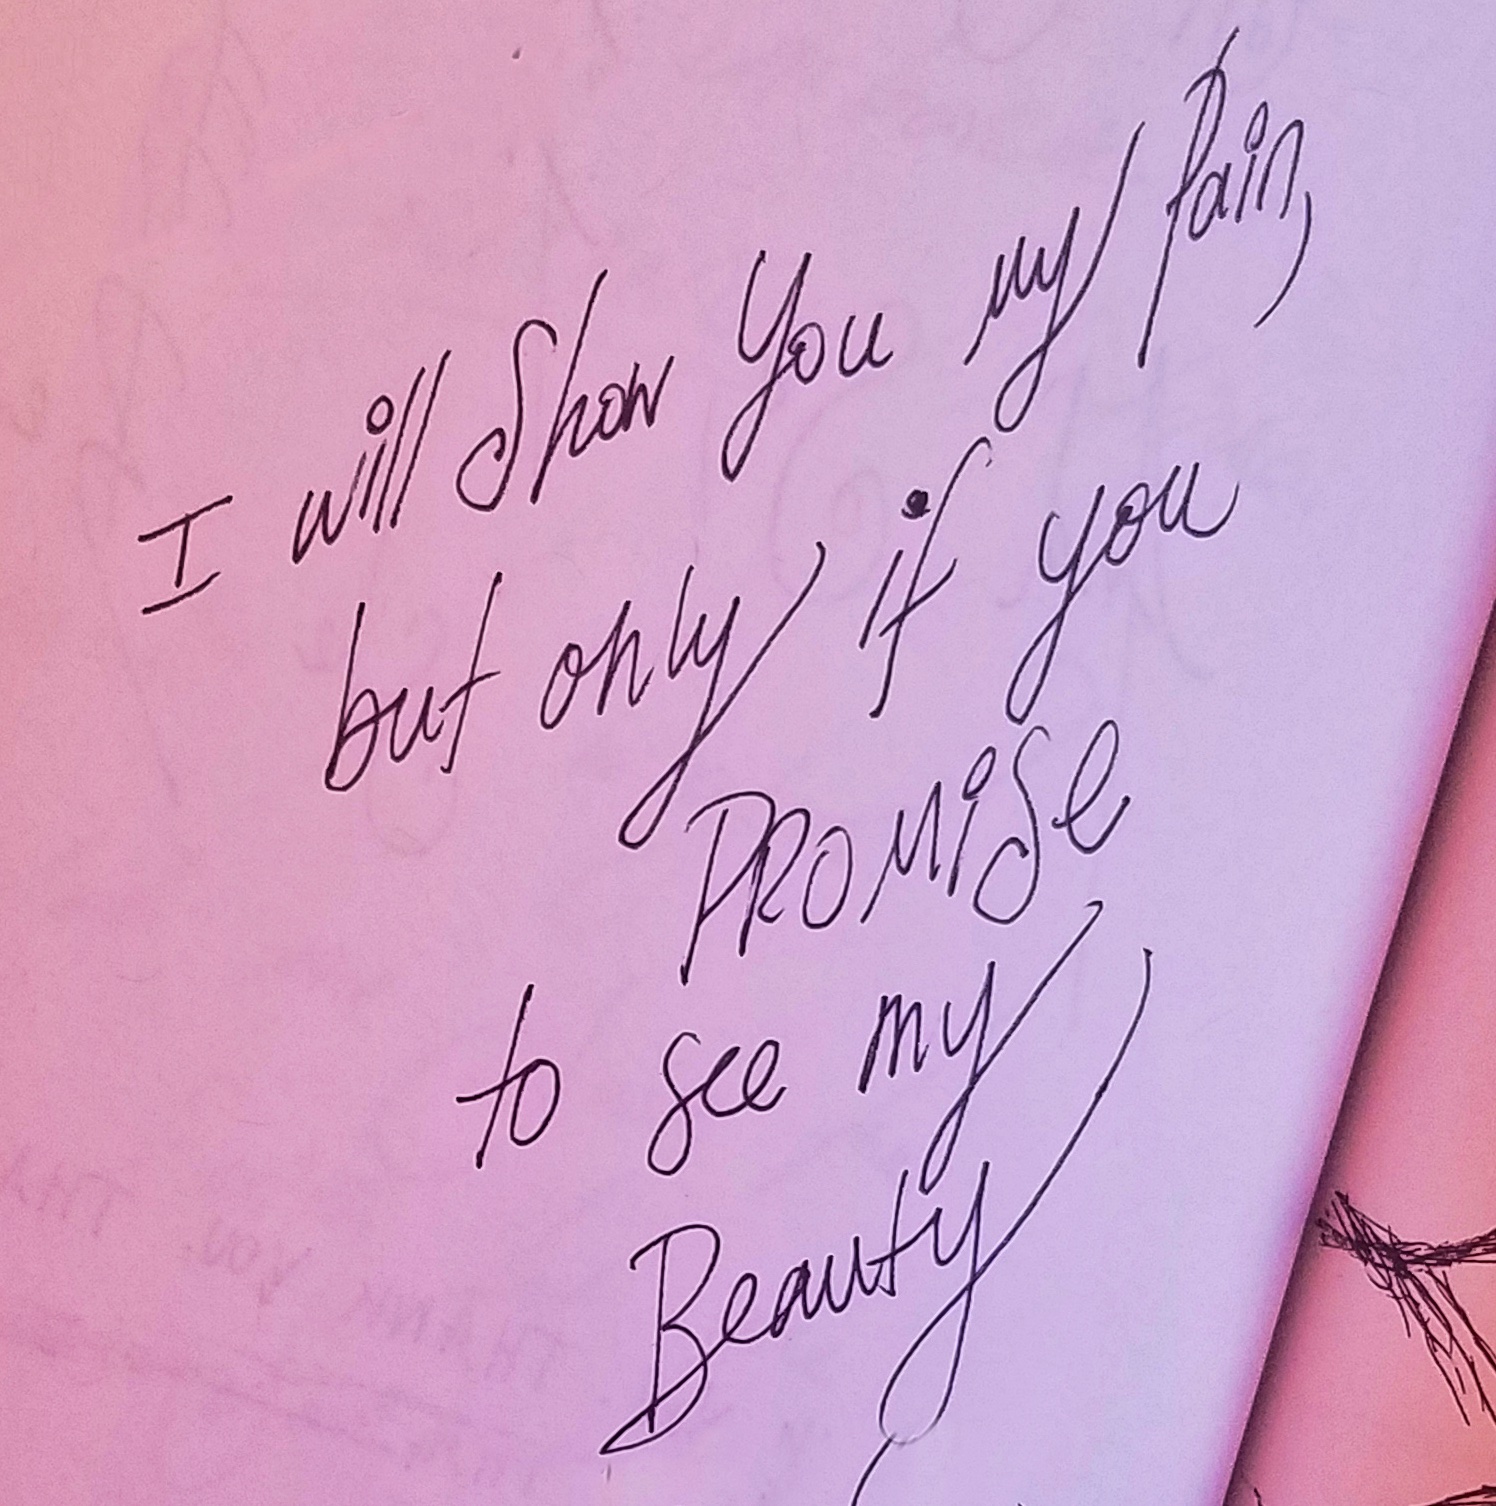 I will Show You my Pain,
but only if you
PROMiSe
to see my
Beauty
THANK YOU. THA